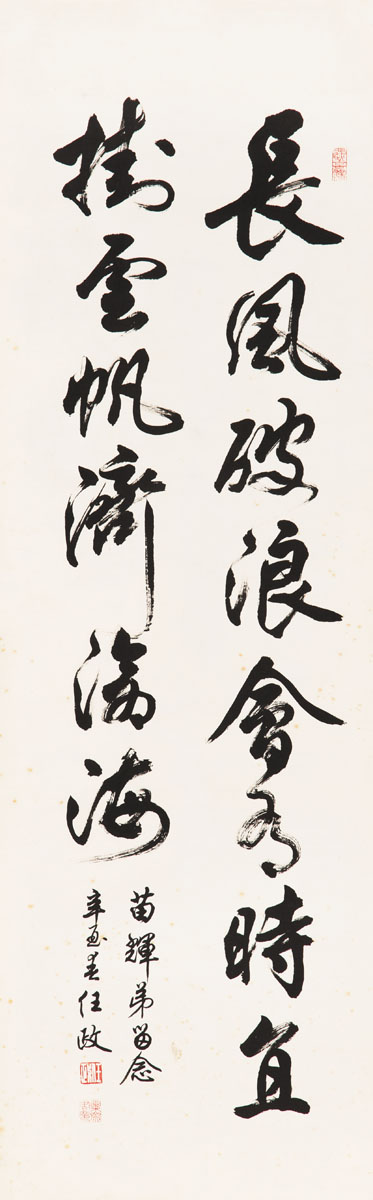 長風破浪會有時直
掛雲帆濟滄海
苗輝弟留念
辛酉春任政